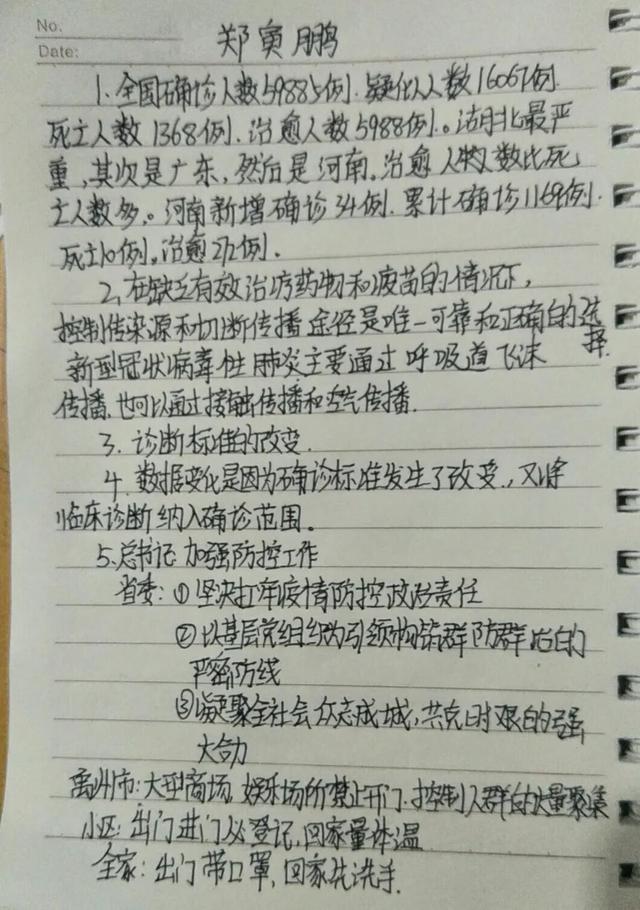 No.
Date:
郑寅鹏
1. 全国确诊人数59885例. 疑似人数16067例
死亡人数1368例. 治愈人数5988例。湖北最严
重,其次是广东,然后是河南。治愈人物数比死
亡人数多。河南新增确诊34例.累计确诊1169例.
死亡10例。治愈272例.
2, 在缺乏有效治疗药物和疫苗的情况下,
控制传染源和切断传播途径是唯一可靠和正确的选
择.
新型冠状病毒性肺炎主要通过呼吸道飞沫
传播.也可以通过接触传播和空气传播.
3. 诊断标准的改变.
4. 数据变化是因为确诊标准发生了改变.,又将
临床诊断纳入确诊范围。
5.总书记:加强防控工作
省委:①坚决扛牢疫情防控政治责任
②以基层党组织为引领构筑群防群治的
严密防线
③凝聚全社会众志成城,共克时艰的强
大合力
禹州市:大型商场,娱乐场所禁止开门.控制人群的大量聚集
小区:出门进门必登记,回家量体温
全家:出门带口罩,回家先洗手.